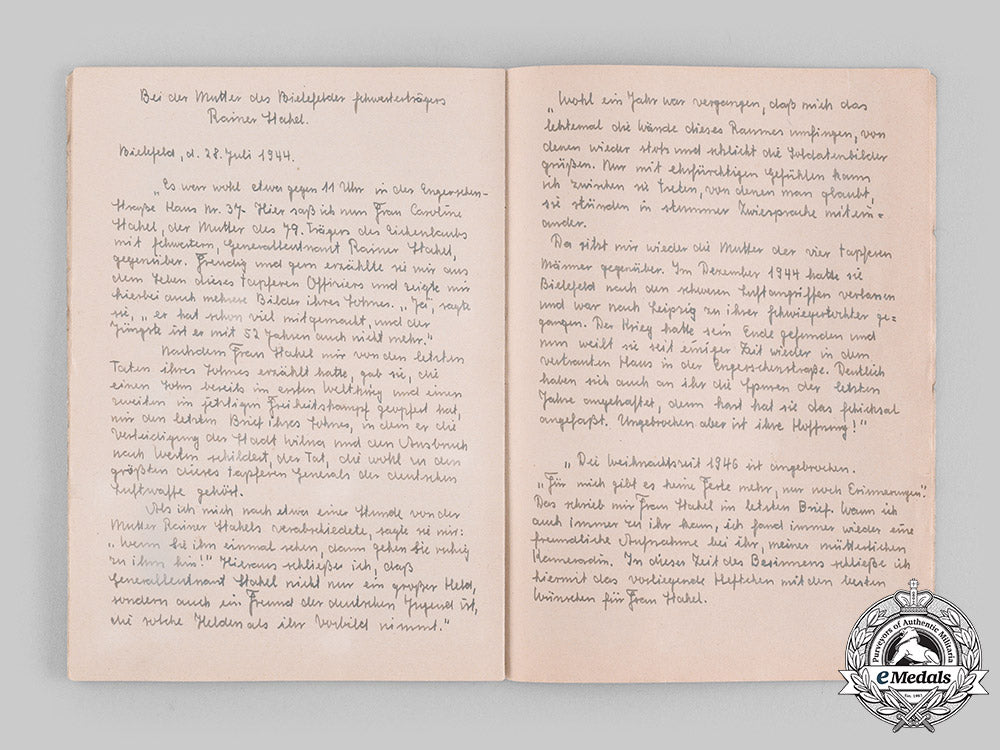 Bei der Mutter des Bielefelder Schwerterträgers
Rainer Stahel.
Bielefeld, d. 28. Juli 1944.
„Es war wohl etwa gegen 11 Uhr in der Engerschen-
straße Haus Nr. 37. Hier saß ich nun Frau Caroline
Stahel, der Mutter des 79. Trägers des Eichenlaubs
mit Schwertern, Generalleutnant Rainer Stahel,
gegenüber. Freudig und gern erzählte sie mir aus
dem Leben dieses tapferen Offiziers und zeigte mir
hierbei auch mehrere Bilder ihres Sohnes. „Ja, sagte
sie, „er hat schon viel mitgemacht, und der
Jüngste ist er mit 52 Jahren auch nicht mehr.“
Nachdem Frau Stahel mir von den letzten
Taten ihres Sohnes erzählt hatte, gab sie, die
einen Sohn bereits im ersten Weltkrieg und einen
zweiten im jetzigen Freiheitskampf geopfert hat,
mir den letzten Brief ihres Sohnes, in dem er die
Verteidigung der Stadt Wilna und den Ausbruch
nach Westen schildert, der Tat, die wohl zu den
größten dieses tapferen Generals der deutschen
Luftwaffe gehört.
Als ich mich nach etwa einer Stunde von der
Mutter Rainer Stahels verabschiedete, sagte sie mir:
„Wenn Sie ihn einmal sehen, dann gehen Sie ruhig
zu ihm hin!“ Hieraus schließe ich, daß
Generalleutnant Stahel nicht nur ein großer Held,
sondern auch ein Freund der deutschen Jugend ist,
die solche Helden als ihr Vorbild nimmt.“
„Wohl ein Jahr war vergangen, daß mich das
letztemal die Wände dieses Raumes umfingen, von
denen wieder stolz und schlicht die Soldatenbilder
grüßen. Nur mit ehrfürchtigen Gefühlen kann
ich zwischen sie treten, von denen man glaubt,
sie stünden in stummer Zwiesprache mitein=
ander.
Da sitzt mir wieder die Mutter der vier tapferen
Männer gegenüber. Im Dezember 1944 hatte sie
Bielefeld nach den schweren Luftangriffen verlassen
und war nach Leipzig zu ihrer Schwiegertochter ge-
gangen. Der Krieg hatte sein Ende gefunden und
nun weilt sie seit einiger Zeit wieder in dem
vertrauten Haus in der Engerschenstraße. Deutlich
haben sich auch an ihr die Spuren der letzten
Jahre angehaftet, denn hart hat sie das Schicksal
angefaßt. Ungebrochen aber ist ihre Hoffnung!“
„Die Weihnachtszeit 1946 ist angebrochen.
„Für mich gibt es keine Feste mehr, nur noch Erinnerungen“.
Das schrieb mir Frau Stahel im letzten Brief. Wann ich
auch immer zu ihr kam, ich fand immer wieder eine
freundliche Aufnahme bei ihr, meiner mütterlichen
Kameradin. In dieser Zeit des Besinnens schließe ich
hiermit das vorliegende Heftchen mit den besten
Wünschen für Frau Stahel.
Purveyors of Authentic Militaria
eMedals